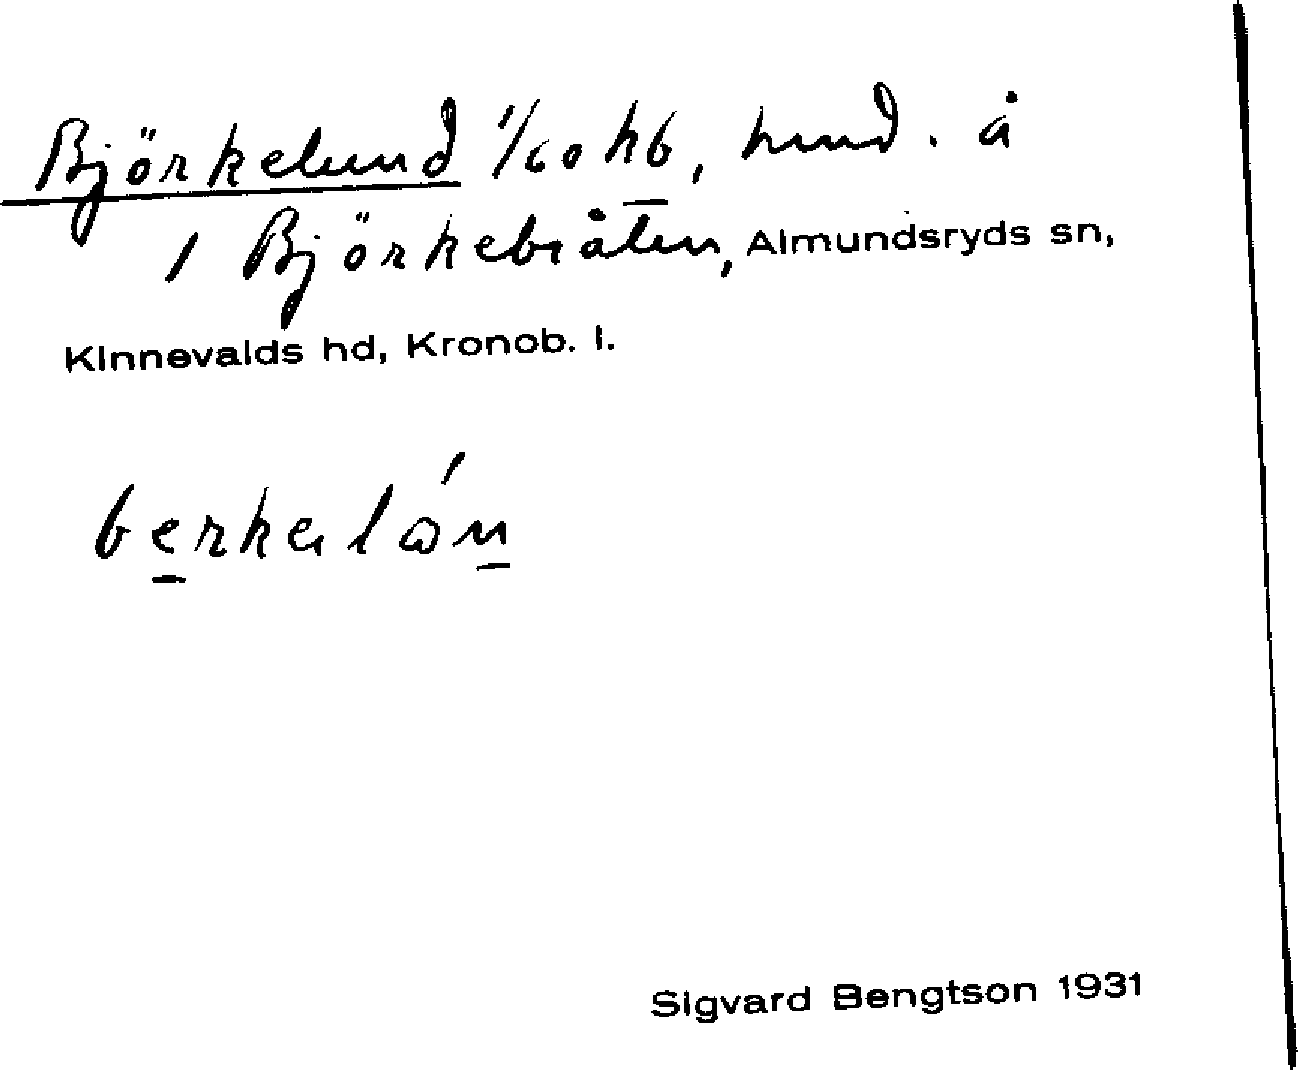 Björkelund 1/60 hb, hmd. å
1 Björkebråten, Almundsryds sn,
Kinnevalds hd, Kronob. l.
Sigvard Bengtson 1931